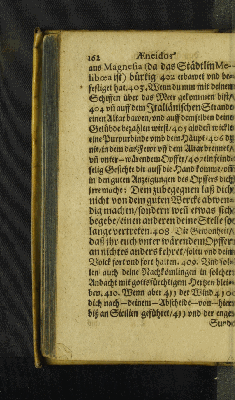 162 Æneidos
aus Magnesia (da das Städtlin Me-
libœa ist) bürtig 402 erbawet und be-
festiget hat. 403. Wenn du nun mit deinem
Schiffen über das Meer gekommen bist/
404 uñ auff dem Italiänischen Strande
einen Altar bawen/ und auff demselben deine
Gelübde bezahlen wirst/ 405 alsdeñ wickle
eine Purpurbinde umb dein Häupt/ 406 da-
mit/ in dem das Fewr uff dem Altar brennet/
uñ unter-wärendem Opffer/ 407 ein feind-
selig Gesichte dir auff die Hand komme/ uñ
in den guten Anzeigungen des Opffers dich
irre mache: Dem zubegegnen laß dich
nicht von dem guten Wercke abwen-
dig machen/ sondern weil etwas sich
begebe/ einen anderen deine Stelle so
lange vertreten. 408 Die Gewonheit/
daß ihr euch unter wärendem Opffern
an nichts anders kehret/ soltu und dein
Volck fort und fort halten. 409. Und sol-
len auch deine Nachkömlingen in solcher
Andacht mit gottsfürchtigem Hertzen blei-
ben. 410. Wenn aber 411 der Wind 410
dich nach-deinem-Abscheide-von-hier
biß an Sicilien geführet/ 411 und der enge